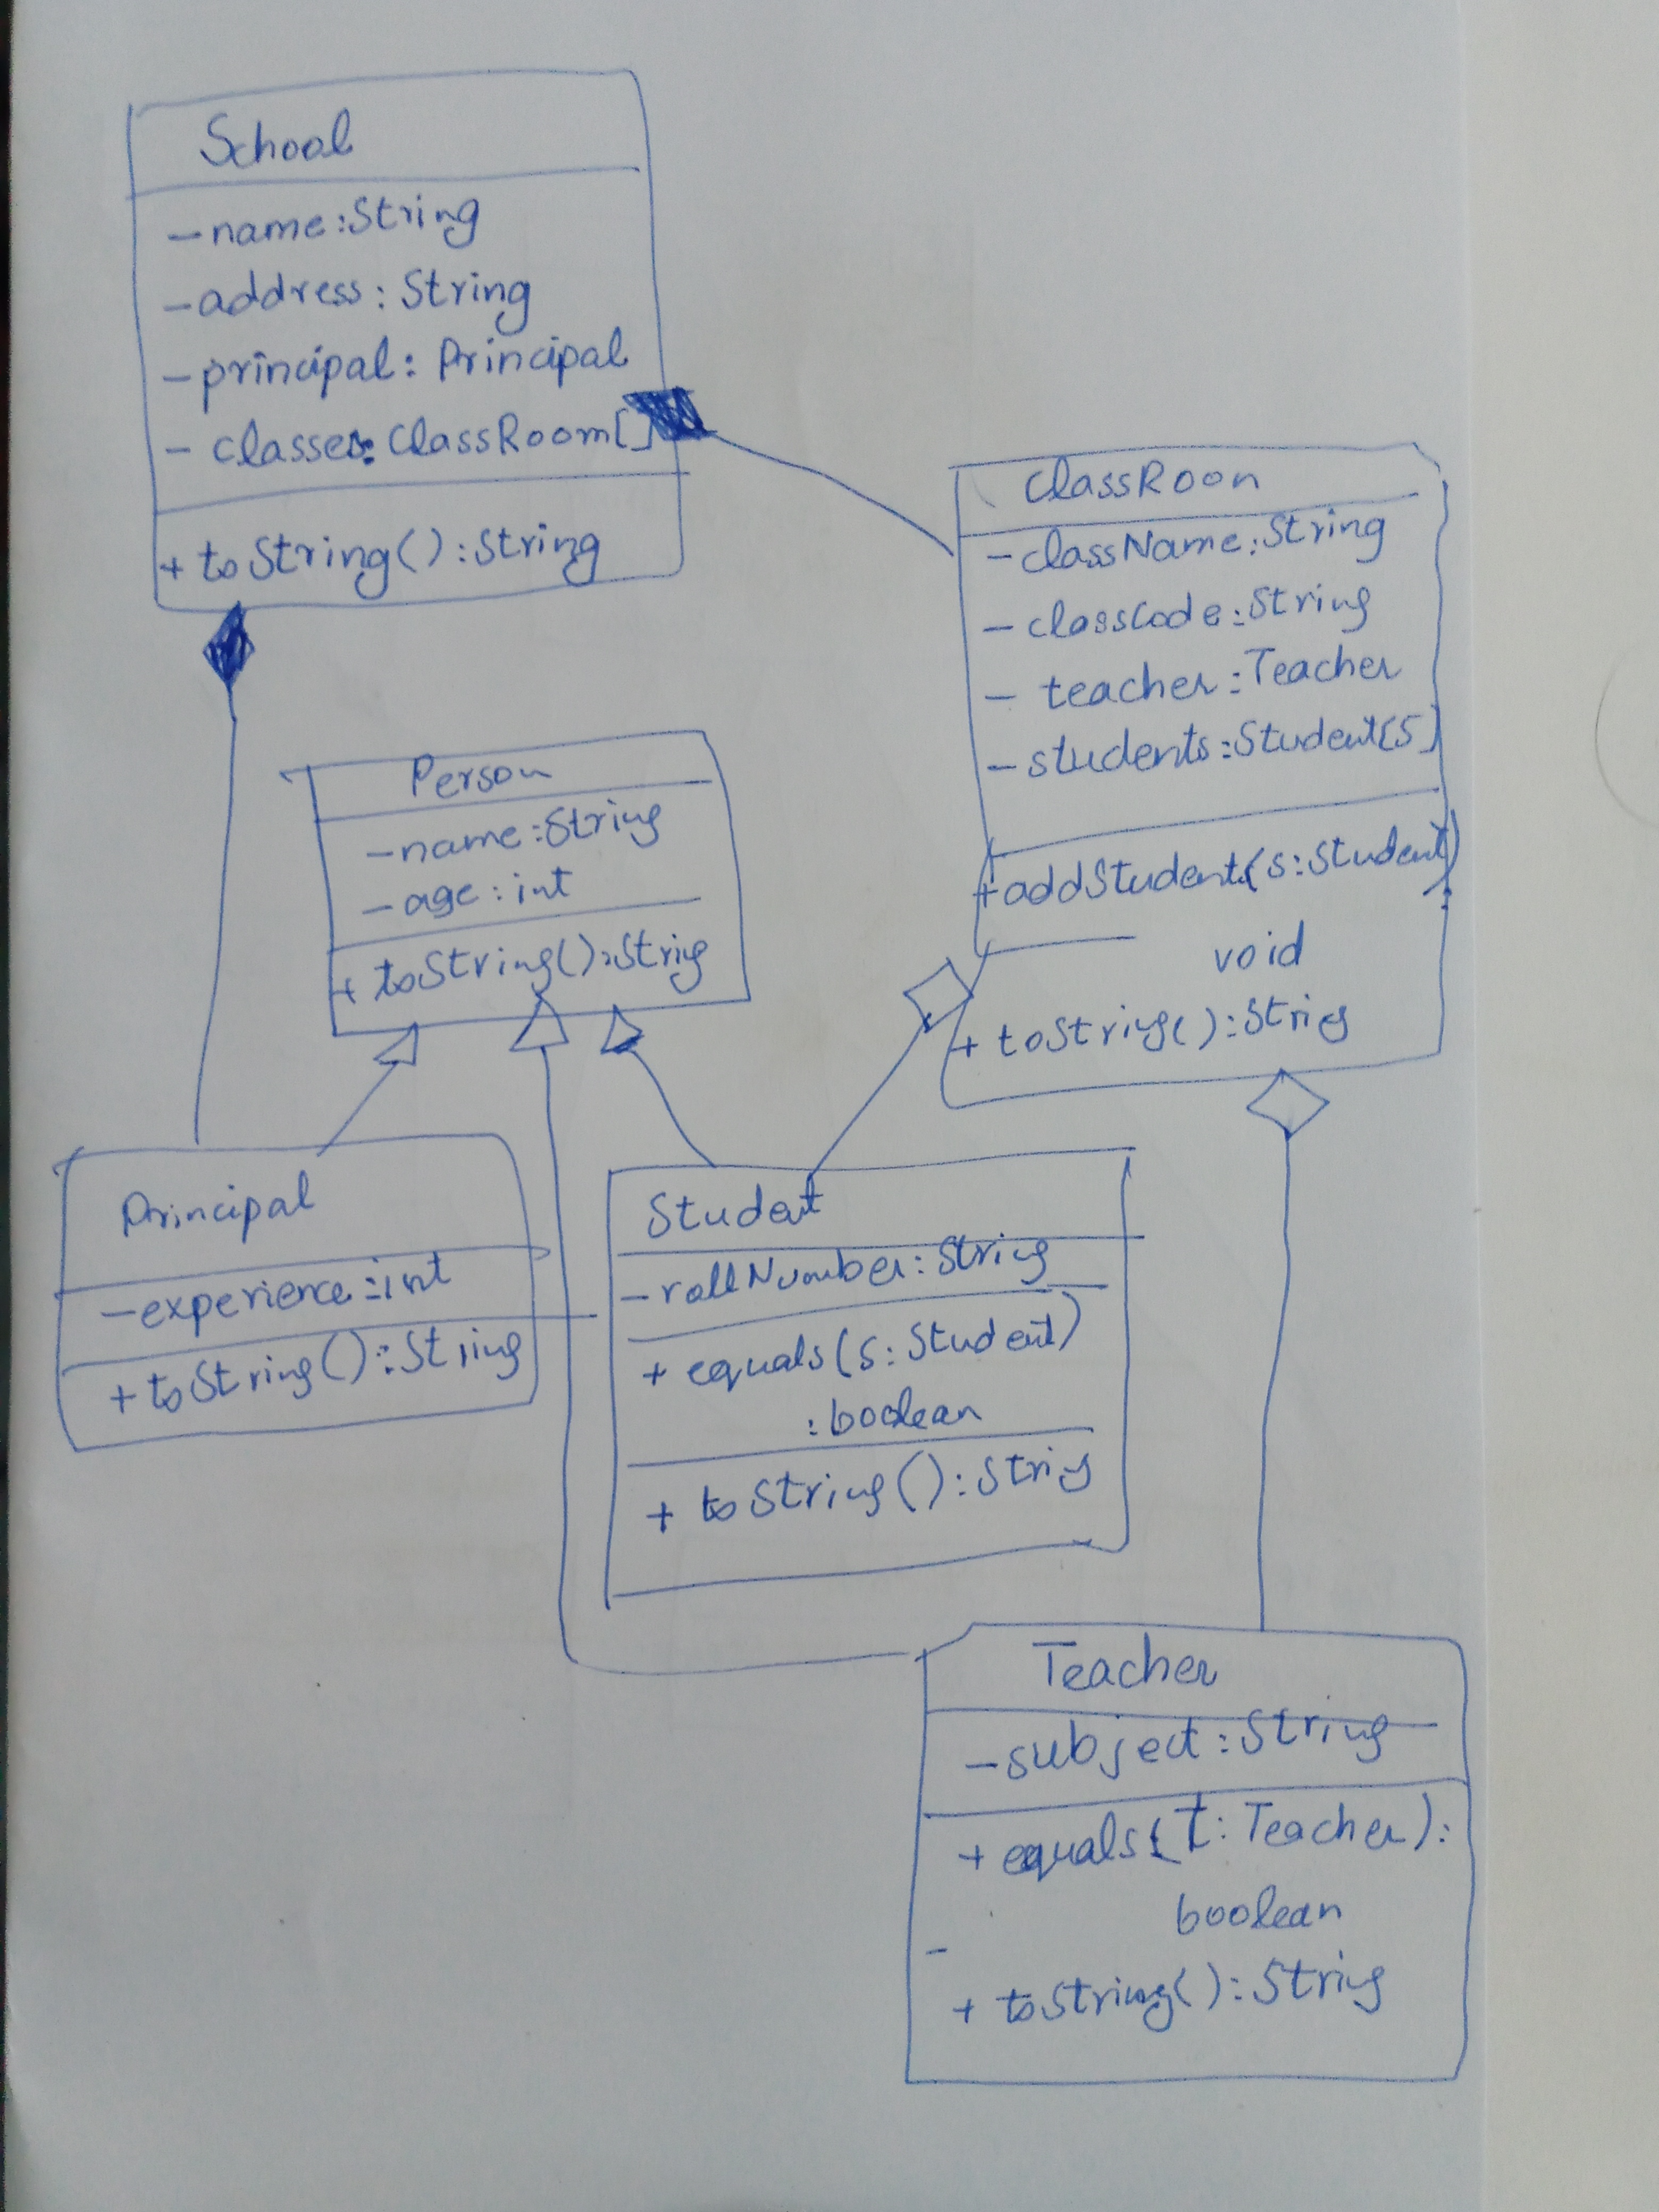 School
-name:String
-address: String
-principal: Principal
- classes: ClassRoom[]
+ toString() : String
ClassRoon
-className:String
-classCode:String
- teacher:Teacher
-students:Student[5]
+addStudent(s:Student):
void
+ toString():String
Person
-name:String
-age:int
+ toString():String
Principal
-experience:int
+toString():String
Student
-rollNumber:String
+ equals(s:Student)
:boolean
+ toString():String
Teacher
-subject:String
+equals(t:Teacher):
boolean
-
+ toString():String